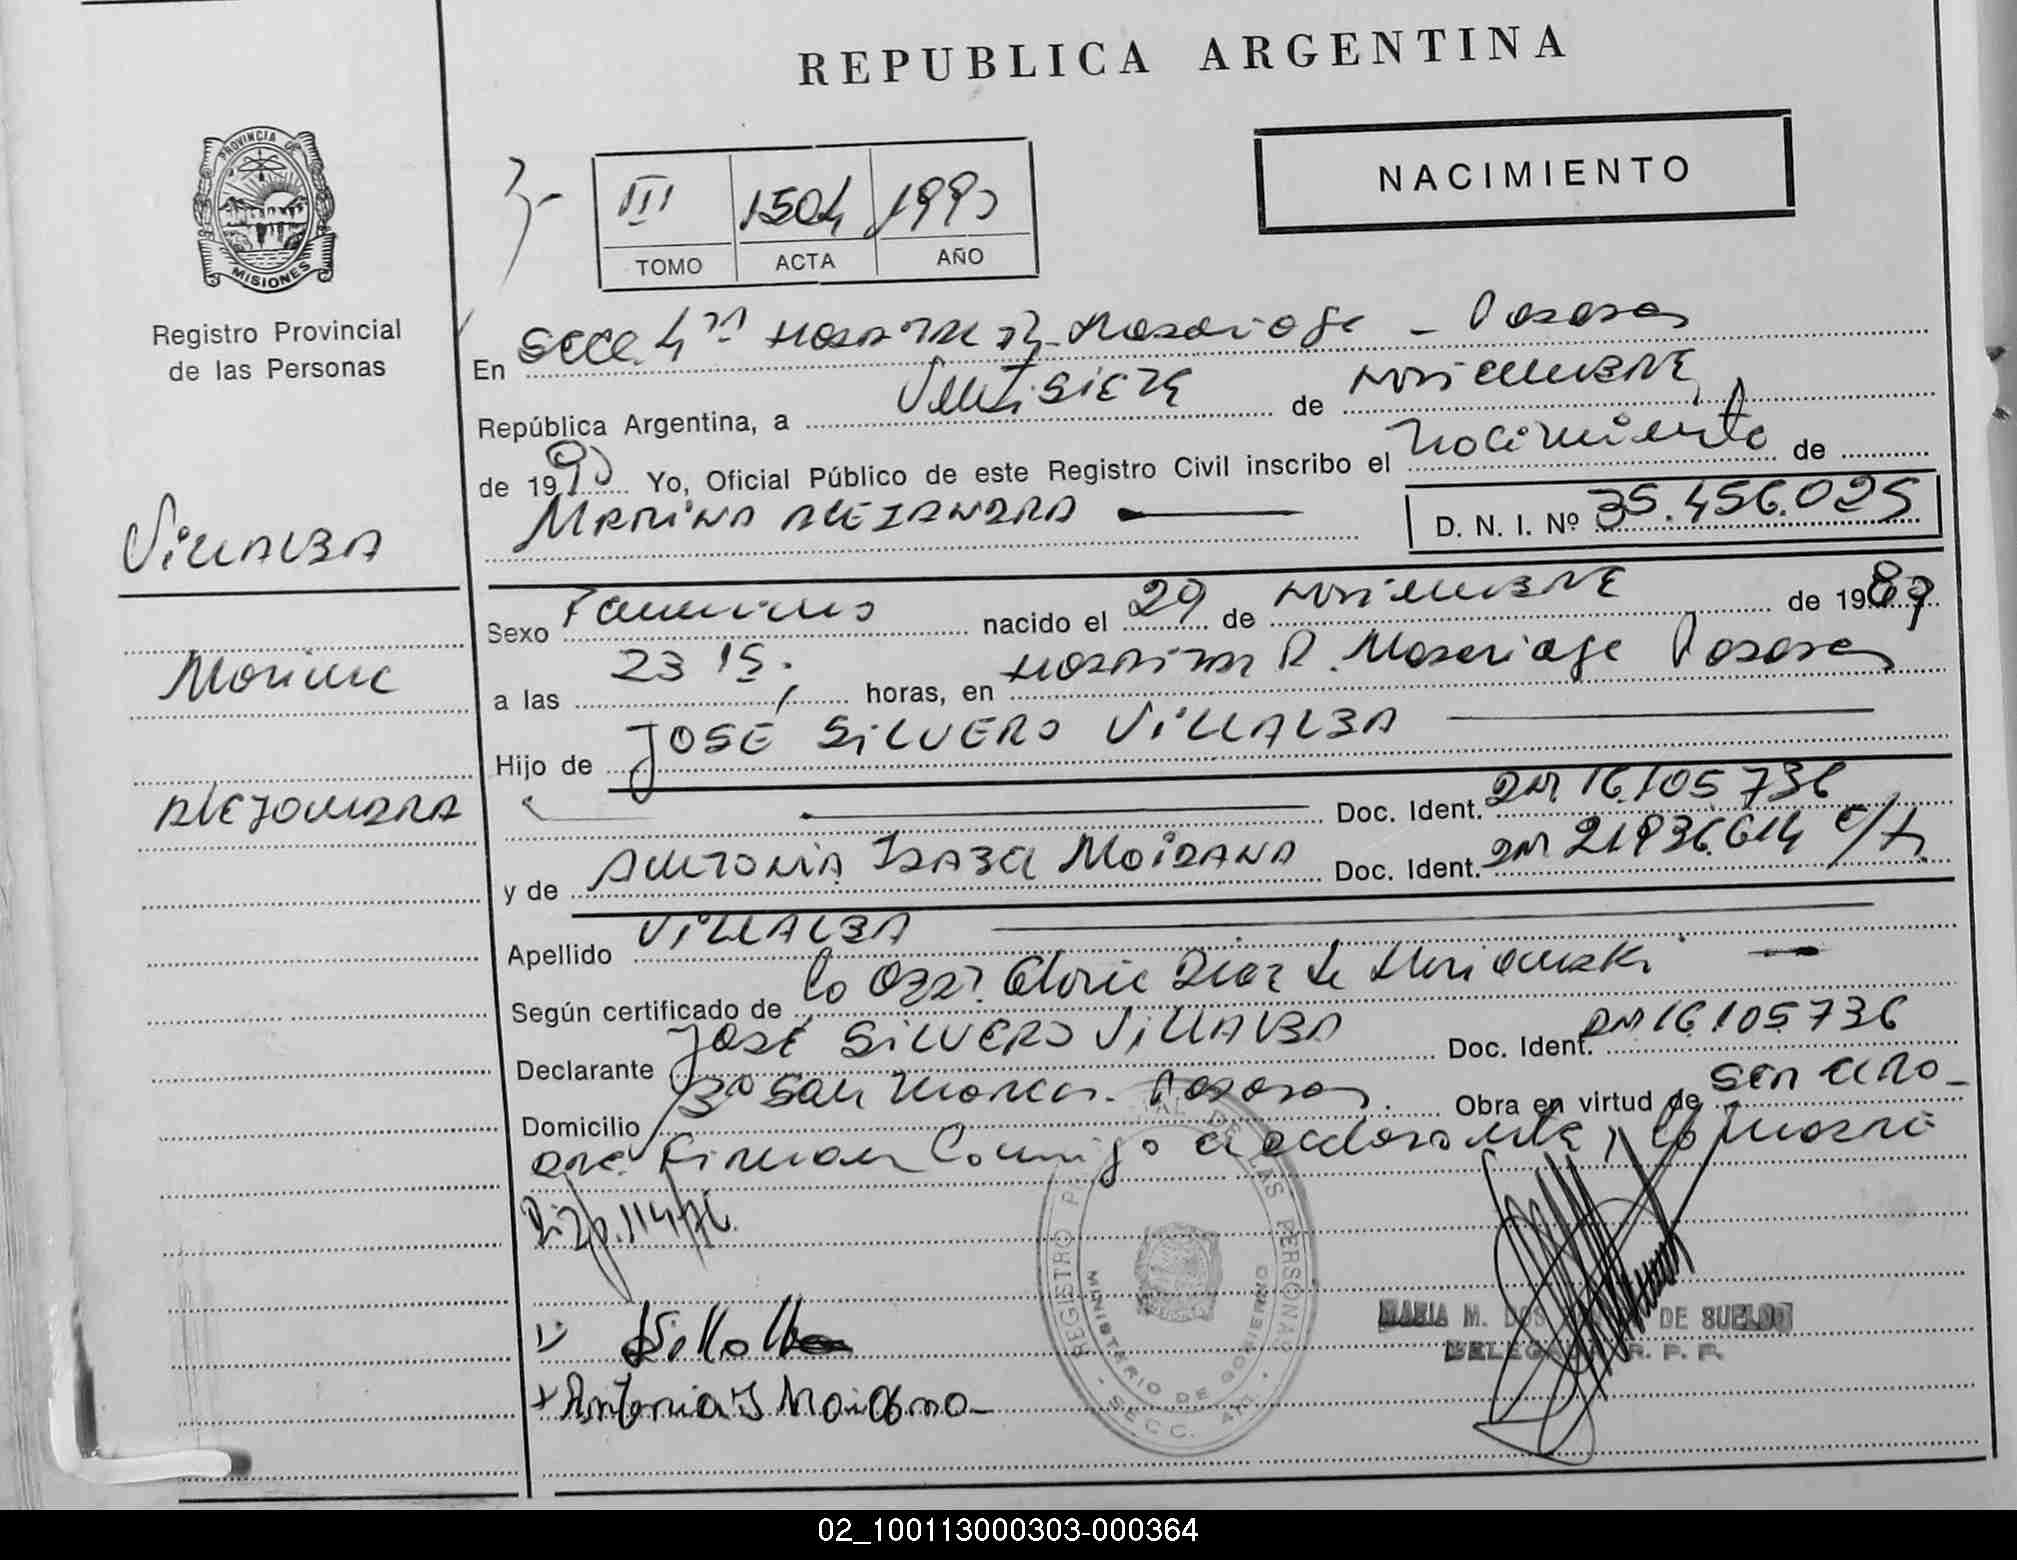 REPUBLICA ARGENTINA
NACIMIENTO
3-
III 1504 1990
TOMO ACTA AÑO
PROVINCIA DE MISIONES
Registro Provincial
de las Personas
En Secc. 4ta Hospital R. Madariaga - Posadas
República Argentina, a Veintisiete de Noviembre
de 1990 Yo, Oficial Público de este Registro Civil inscribo el Nacimiento de
MARINA ALEJANDRA D. N. I. Nº 35.456.025
VILLALBA
Marina
ALEJANDRA
Sexo Femenino nacido el 29 de Noviembre de 1989
a las 23 15 horas, en Hospital R. Madariaga Posadas
Hijo de JOSÉ SILVERO VILLALBA
Doc. Ident. DNI 16.105.736
y de ANTONIA ISABEL MOIDANA Doc. Ident. DNI 21.936.614
Apellido VILLALBA
Según certificado de la Obst. Gloria Diaz de
Declarante JOSÉ SILVERO VILLALBA Doc. Ident. DNI 16.105.736
Domicilio Bº San Marcos. Posadas. Obra en virtud de ser el pa-
dre. Firman Conmigo el declarante y la madre
Disp. 114/76.
Villalba
+ Antonia I Moidana
REGISTRO PROVINCIAL DE LAS PERSONAS
MINISTERIO DE GOBIERNO
SECC. 4ta.
MARIA M. DOS DE SUELDO
DELEGADA R. P. P.
02_100113000303-000364